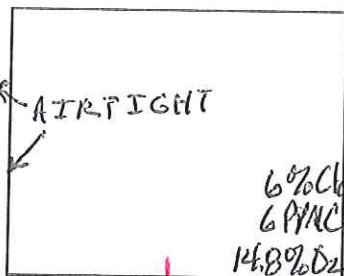 AIRTIGHT
6%Cl2
6 PPMC
14.8%O2